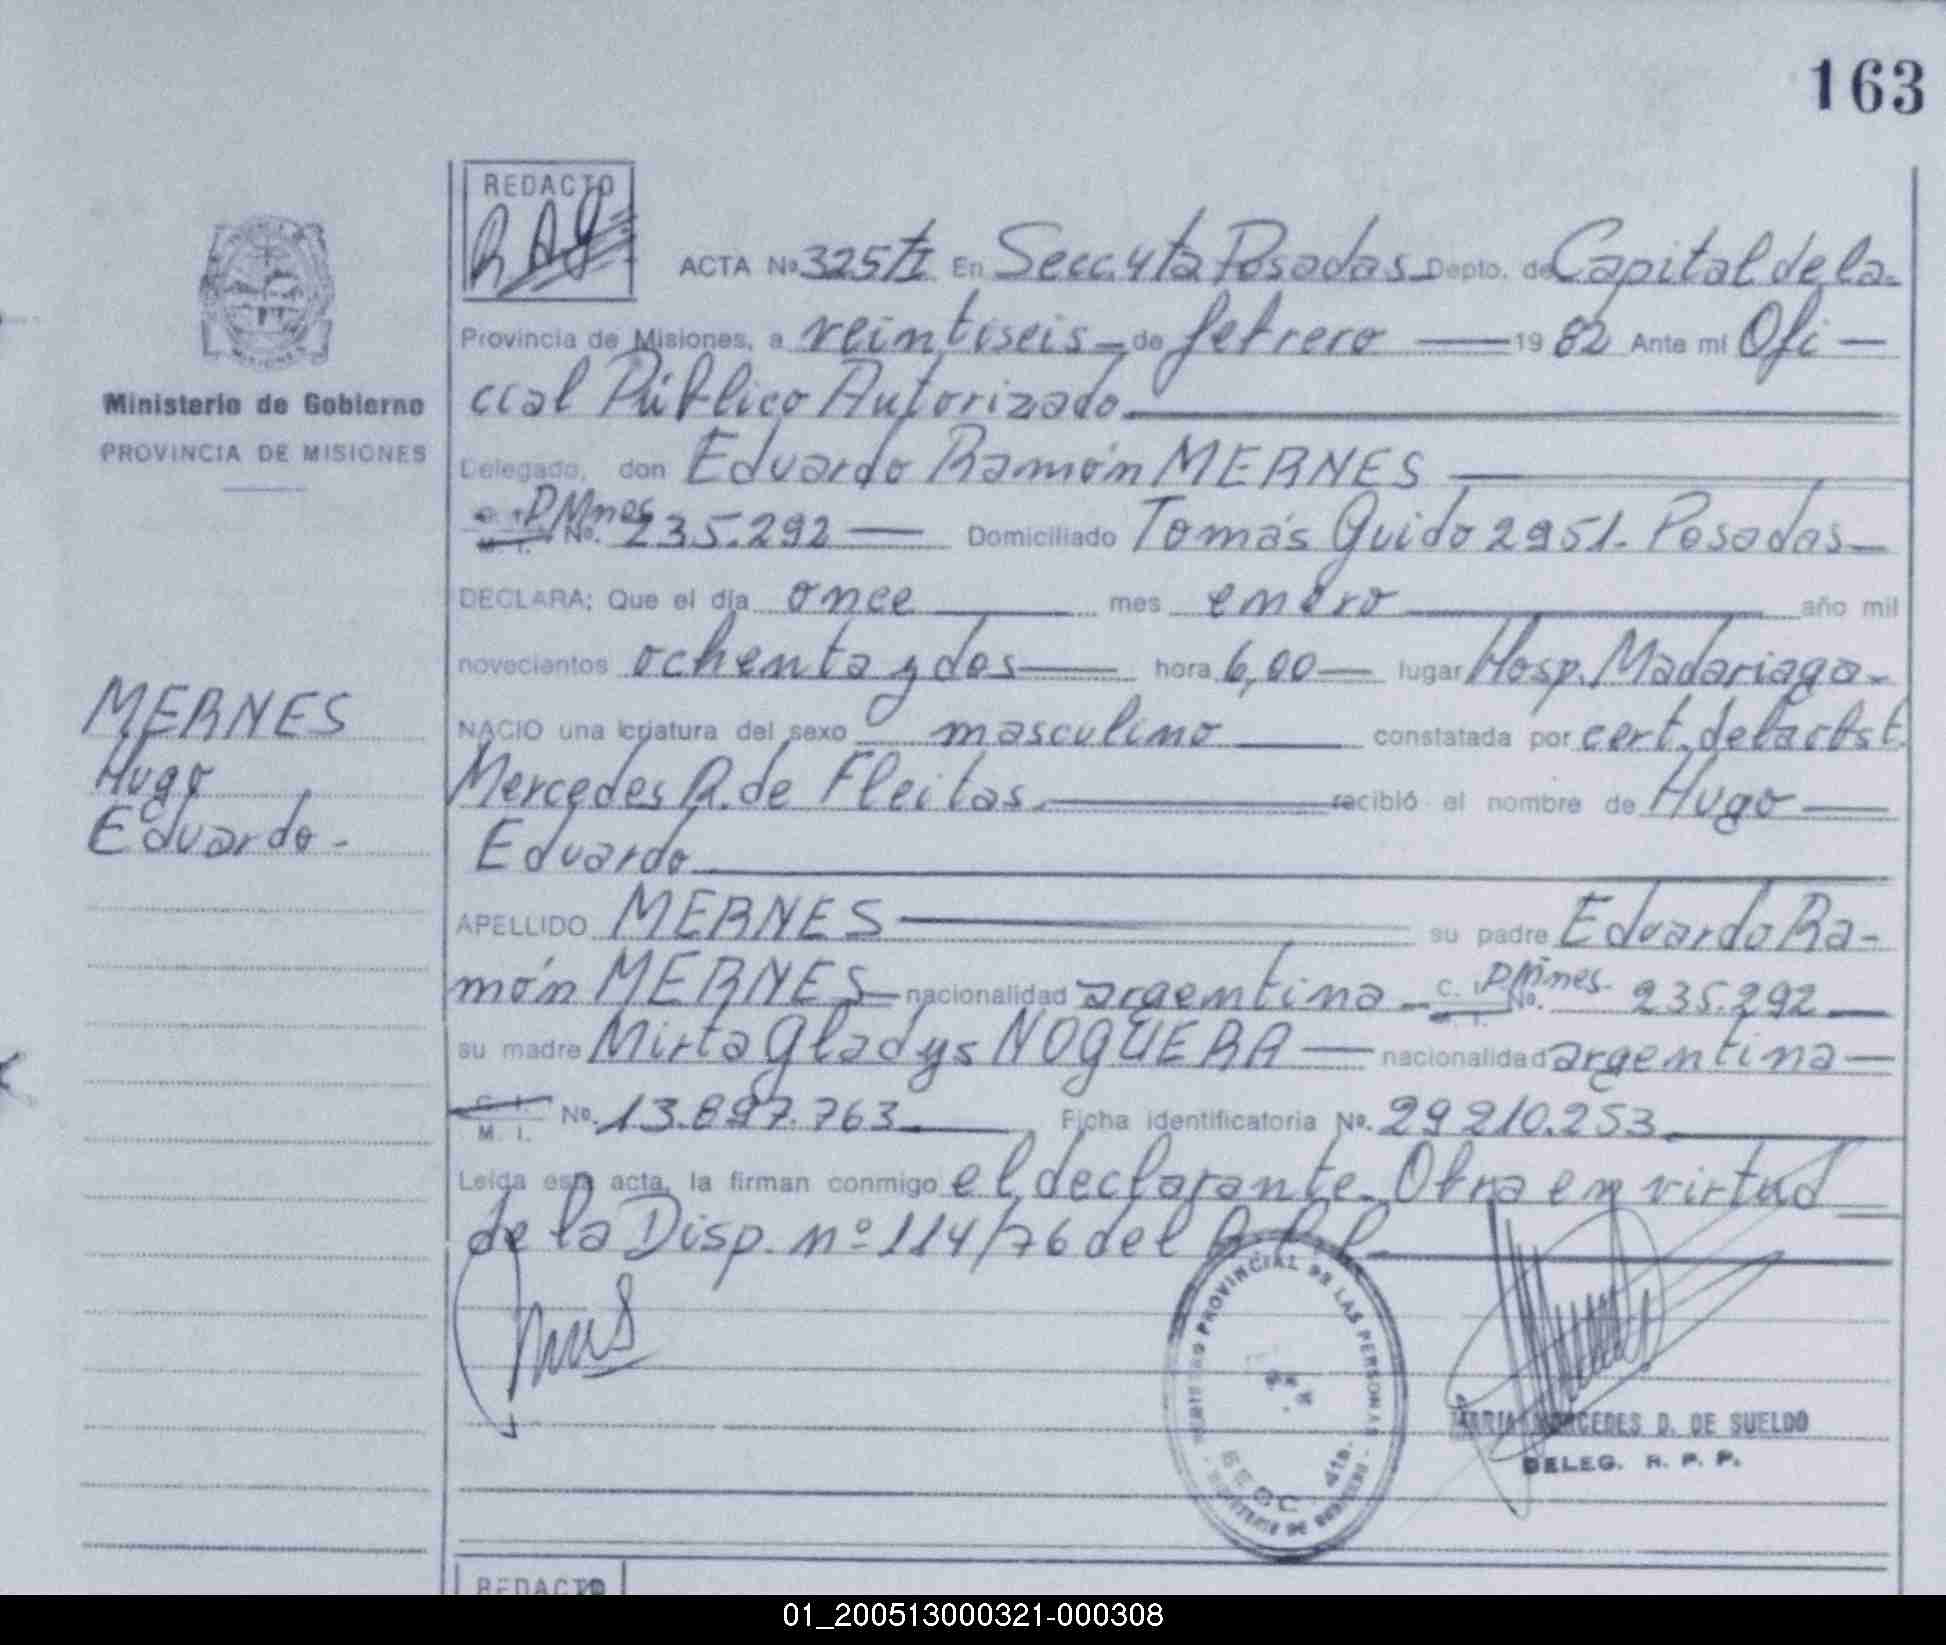 163
REDACTO
ACTA Nº 325 En Secc. 4ta Posadas Depto. de Capital de la
Provincia de Misiones, a veintiseis de febrero 19 82 Ante mi Ofi-
cial Público Autorizado.
Ministerio de Gobierno
PROVINCIA DE MISIONES
Delegado, don Eduardo Ramón MERNES
No. 235.292 Domiciliado Tomás Guido 2951. Posadas
DECLARA: Que el día once mes enero año mil
novecientos ochenta y dos hora 6,00 lugar Hosp. Madariaga
NACIO una criatura del sexo masculino constatada por cert. de la obst.
Mercedes R. de Fleitas recibió el nombre de Hugo
Eduardo
MERNES
Hugo
Eduardo -
APELLIDO MERNES su padre Eduardo Ra-
món MERNES nacionalidad argentina C. I. No. 235.292
su madre Mirta Gladys NOGUERA nacionalidad argentina
M. I. No. 13.897.763 Ficha identificatoria No. 29210.253
Leída esta acta, la firman conmigo el declarante. Obra en virtud
de la Disp. nº 114/76 del
REGISTRO PROVINCIAL DE LAS PERSONAS
SECC. 4ta.
MARIA MERCEDES D. DE SUELDO
DELEG. R. P. P.
REDACTO
01_200513000321-000308